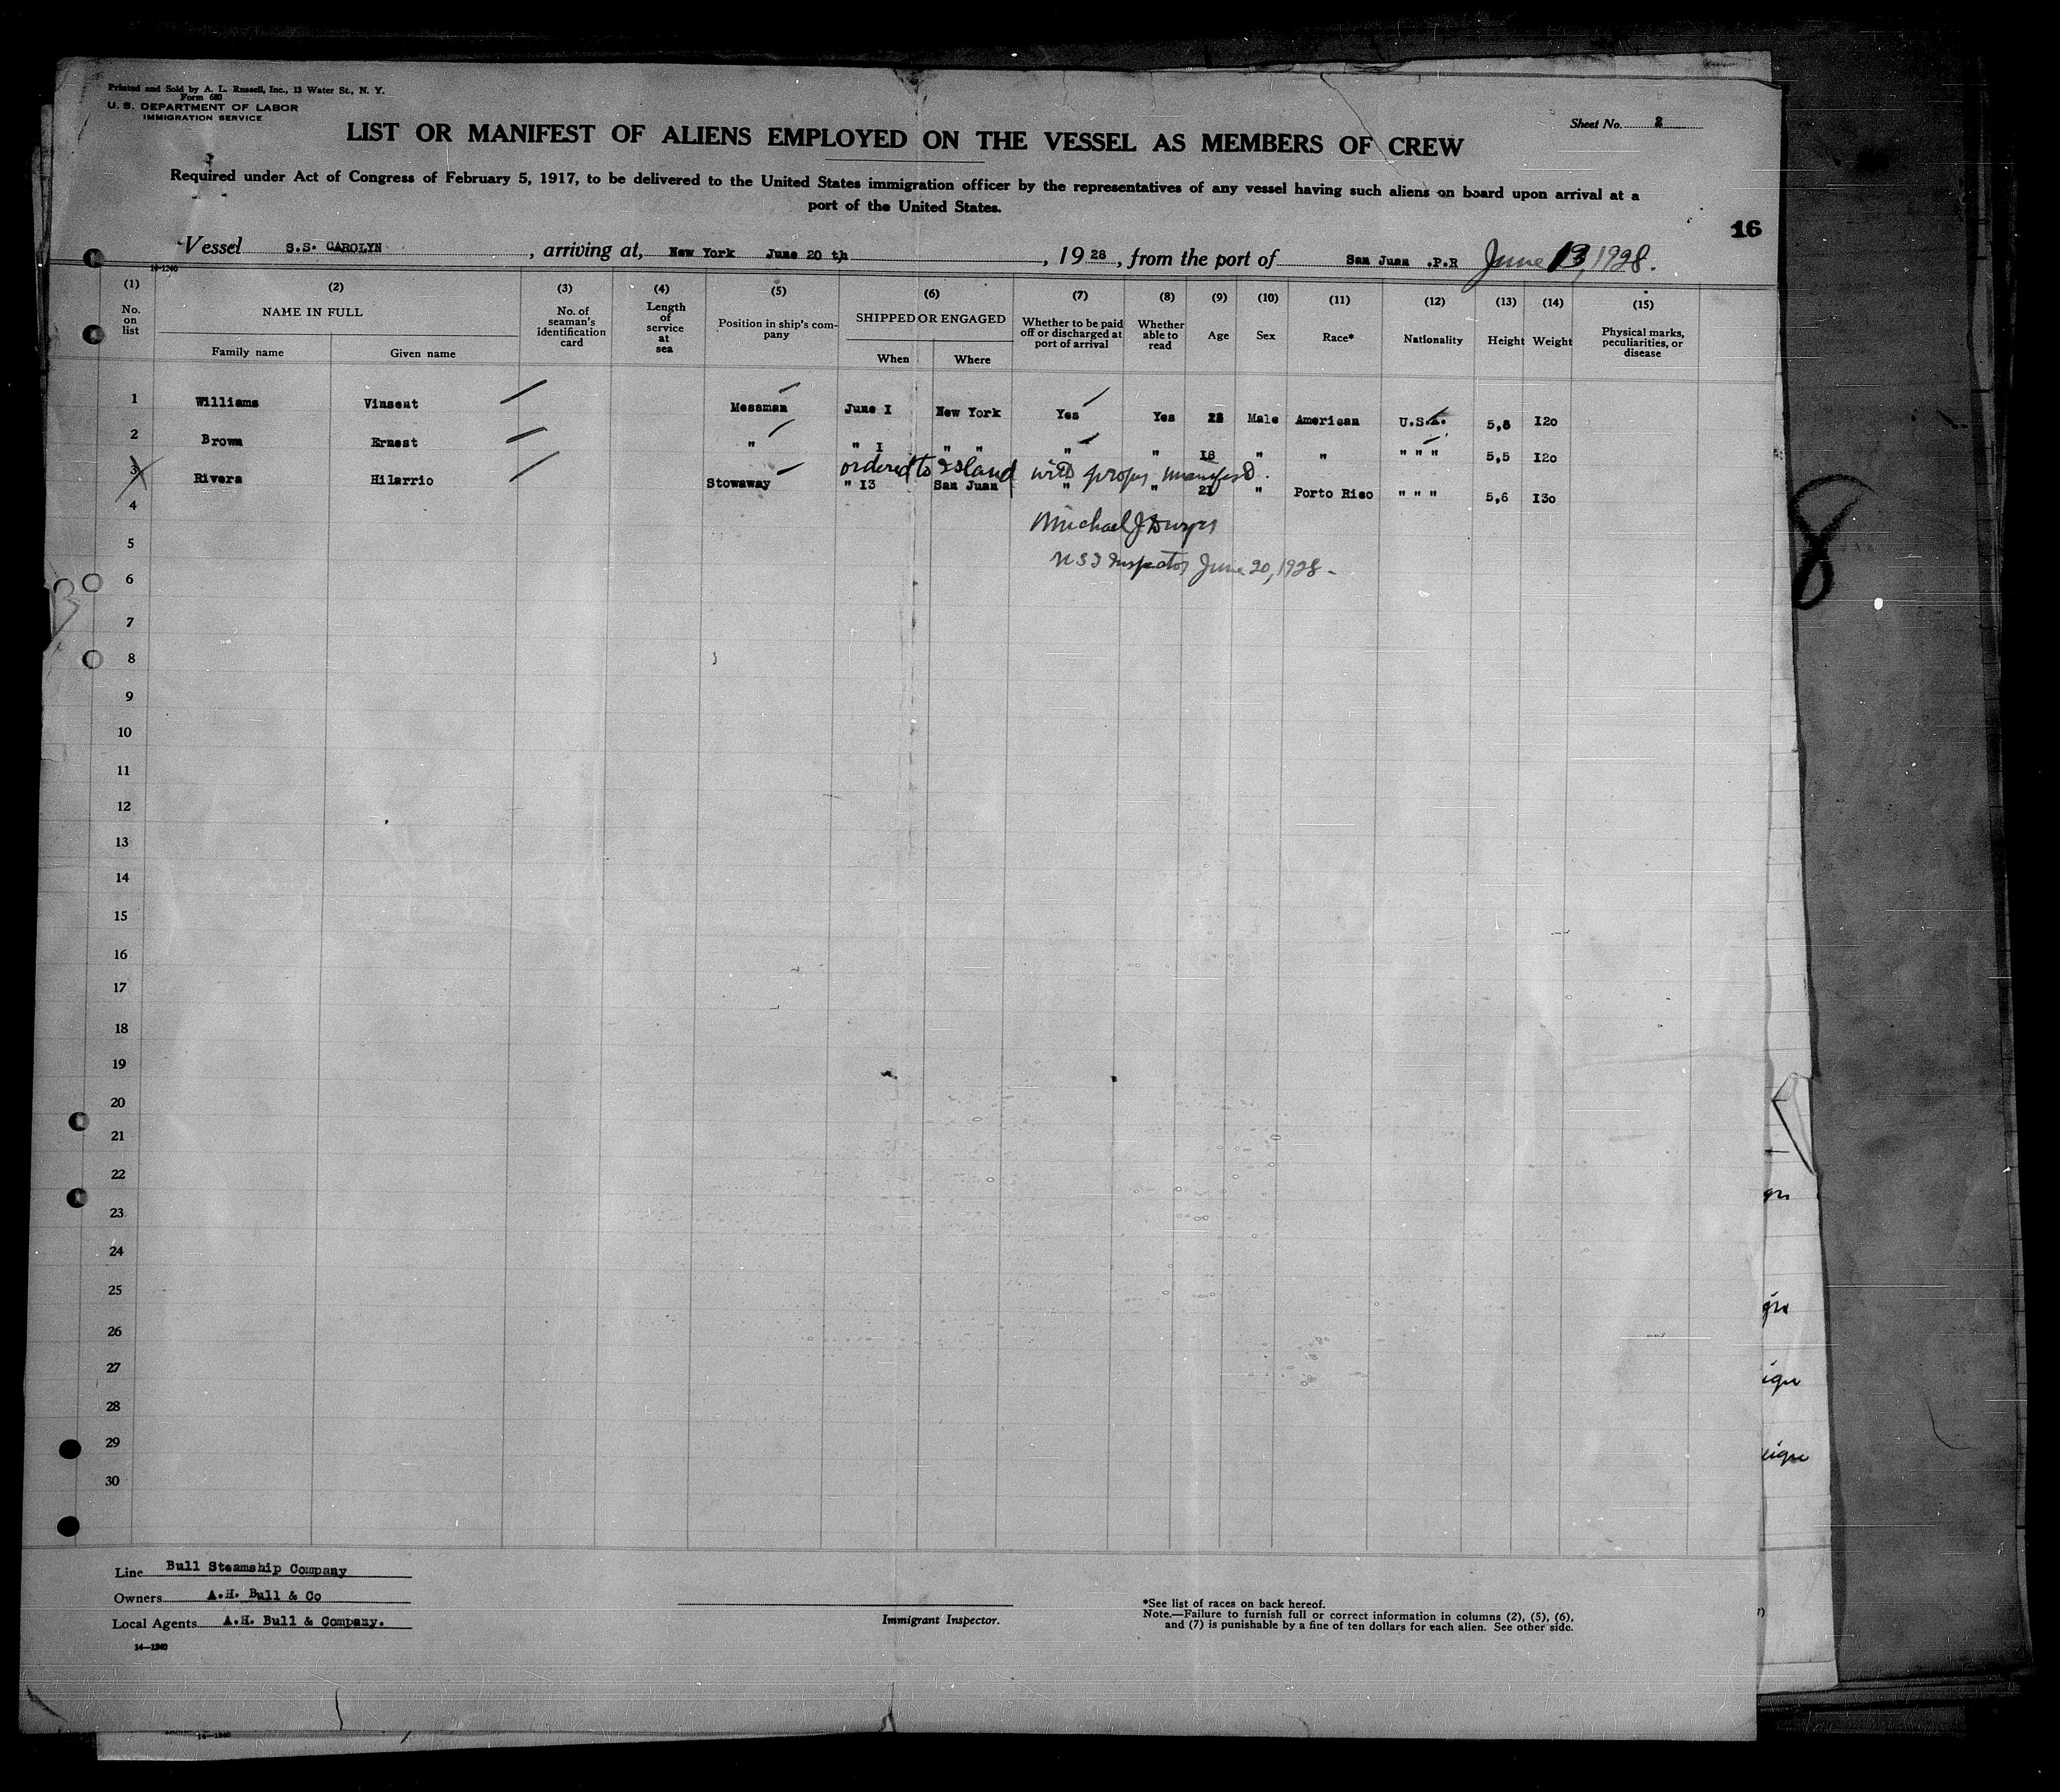 Printed and Sold by A. L. Russell, Inc., 13 Water St., N. Y.
Form 680
U. S. DEPARTMENT OF LABOR
IMMIGRATION SERVICE
Sheet No. 2
LIST OR MANIFEST OF ALIENS EMPLOYED ON THE VESSEL AS MEMBERS OF CREW
Required under Act of Congress of February 5, 1917, to be delivered to the United States immigration officer by the representatives of any vessel having such aliens on board upon arrival at a
port of the United States.
16
Vessel S.S. CAROLYN, arriving at, New York June 20 th, 1928, from the port of San Juan .P.R June 13, 1928.
14-1240
(1) (2) (3) (4) (5) (6) (7) (8) (9) (10) (11) (12) (13) (14) (15)
No. on list
NAME IN FULL
Family name Given name
No. of seaman's identification card
Length of service at sea
Position in ship's company
SHIPPED OR ENGAGED
When Where
Whether to be paid off or discharged at port of arrival
Whether able to read
Age
Sex
Race*
Nationality
Height
Weight
Physical marks, peculiarities, or disease
1 Williams Vinsent Messman June I New York Yes Yes Male American U.S.A. 5,8 I20
2 Brown Ernest " " I " " " " 18 " " " " " 5,5 I20
ordered to Island with proper manifest.
3 Rivera Hilarrio Stowaway " I3 San Juan " " 21 " Porto Rico " " " 5,6 I30
4
Michael J Dwyer
5
U S I Inspector June 20, 1928 -
6
7
8
9
10
11
12
13
14
15
16
17
18
19
20
21
22
23
24
25
26
27
28
29
30
Line Bull Steamship Company
Owners A.H. Bull & Co
Local Agents A.H. Bull & Company.
14—1240
Immigrant Inspector.
*See list of races on back hereof.
Note.—Failure to furnish full or correct information in columns (2), (5), (6),
and (7) is punishable by a fine of ten dollars for each alien. See other side.
8
14—1240